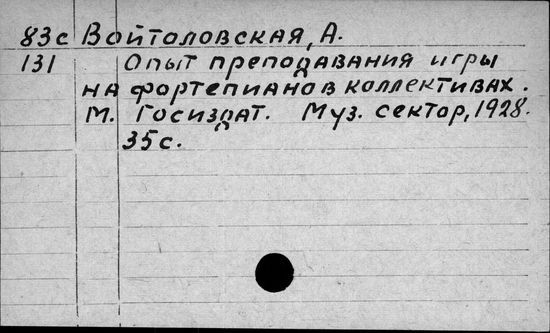 83с Войтоловская, А.
131 Опыт преподавания игры
на фортепиано в коллективах.
М. Госиздат. Муз. сектор, 1928.
35с.